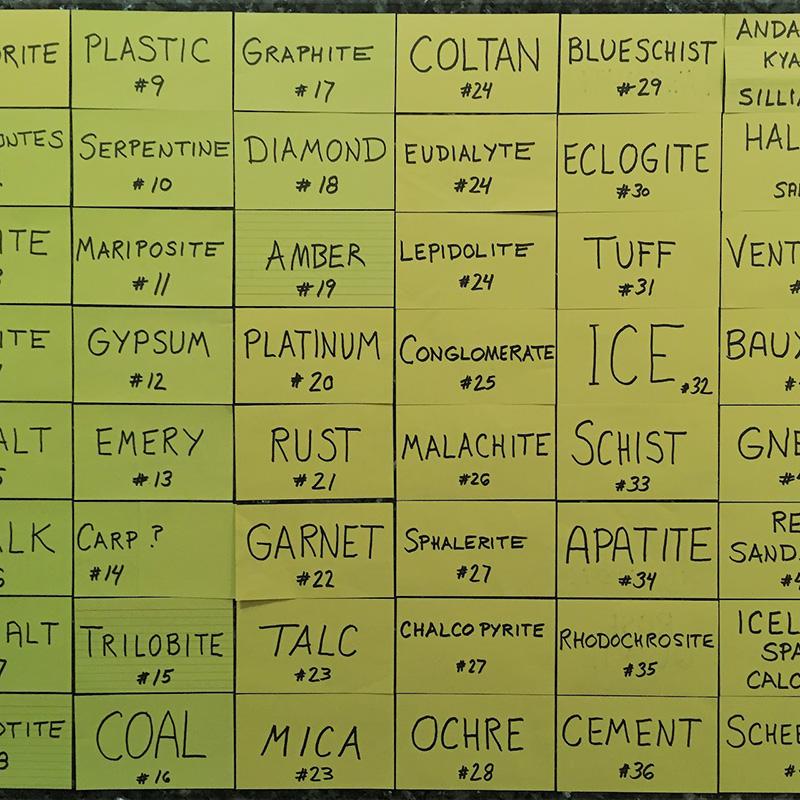 RITE
NTES
ITE
ITE
ALT
5
LK
6
ALT
7
TITE
8
PLASTIC
#9
SERPENTINE
#10
MARIPOSITE
#11
GYPSUM
#12
EMERY
#13
CARP ?
#14
TRILOBITE
#15
COAL
#16
GRAPHITE
#17
DIAMOND
#18
AMBER
#19
PLATINUM
#20
RUST
#21
GARNET
#22
TALC
#23
MICA
#23
COLTAN
#24
EUDIALYTE
#24
LEPIDOLITE
#24
CONGLOMERATE
#25
MALACHITE
#26
SPHALERITE
#27
CHALCOPYRITE
#27
OCHRE
#28
BLUESCHIST
#29
ECLOGITE
#30
TUFF
#31
ICE
#32
SCHIST
#33
APATITE
#34
RHODOCHROSITE
#35
CEMENT
#36
ANDA
KYA
SILLI
HAL
SA
VENT
#
BAUX
#
GNE
#4
RE
SAND
#4
ICEL
SPA
CALC
SCHEE
#